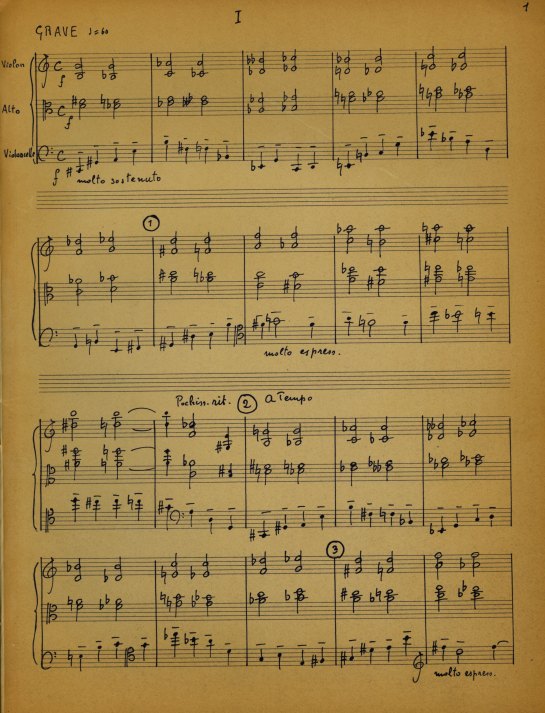 I
1
GRAVE ♩=60
Violon
f
Alto
f
Violoncelle
f molto sostenuto
1
molto espress.
Pochiss. rit. 2 a Tempo
3
molto espress.